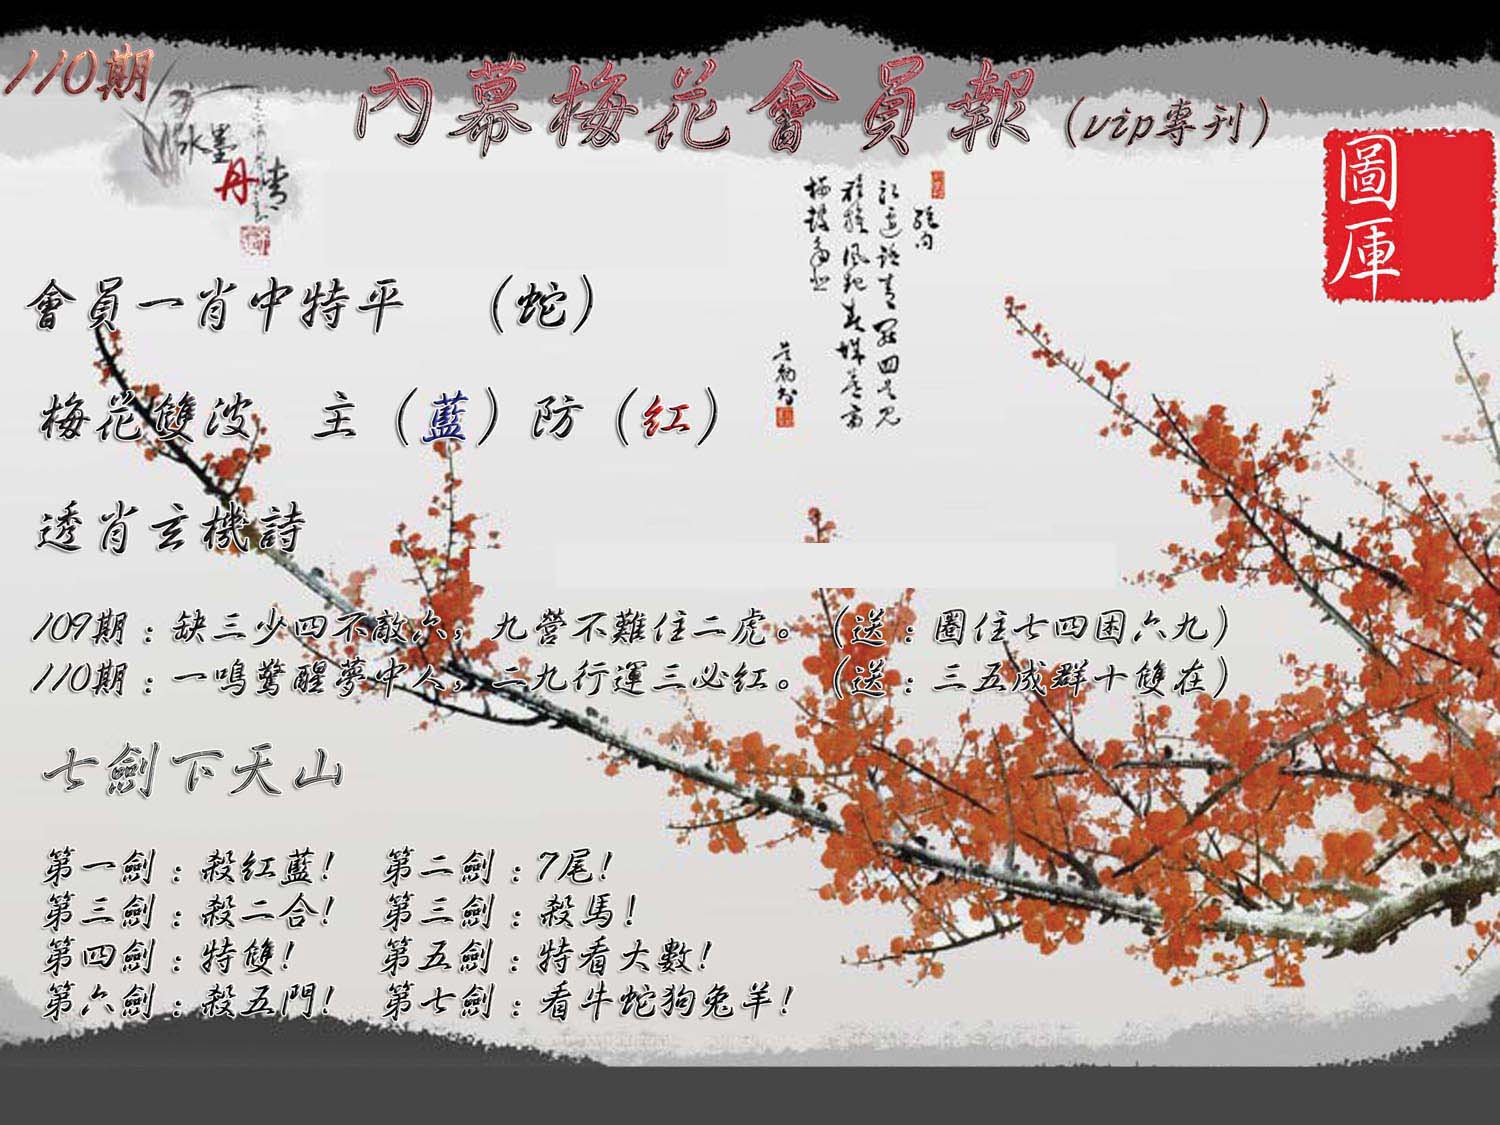 110期
內幕梅花會員報(vip專刊)
水墨
丹青
圖庫
會員一肖中特平 (蛇)
梅花雙波 主(藍)防(紅)
透肖玄機詩
109期:缺三少四不敵六,九營不難住二虎。(送:圈住七四困六九)
110期:一鳴驚醒夢中人,二九行運三必紅。(送:三五成群十雙在)
七劍下天山
第一劍:殺紅藍! 第二劍:7尾!
第三劍:殺二合! 第三劍:殺馬!
第四劍:特雙! 第五劍:特看大數!
第六劍:殺五門! 第七劍:看牛蛇狗兔羊!